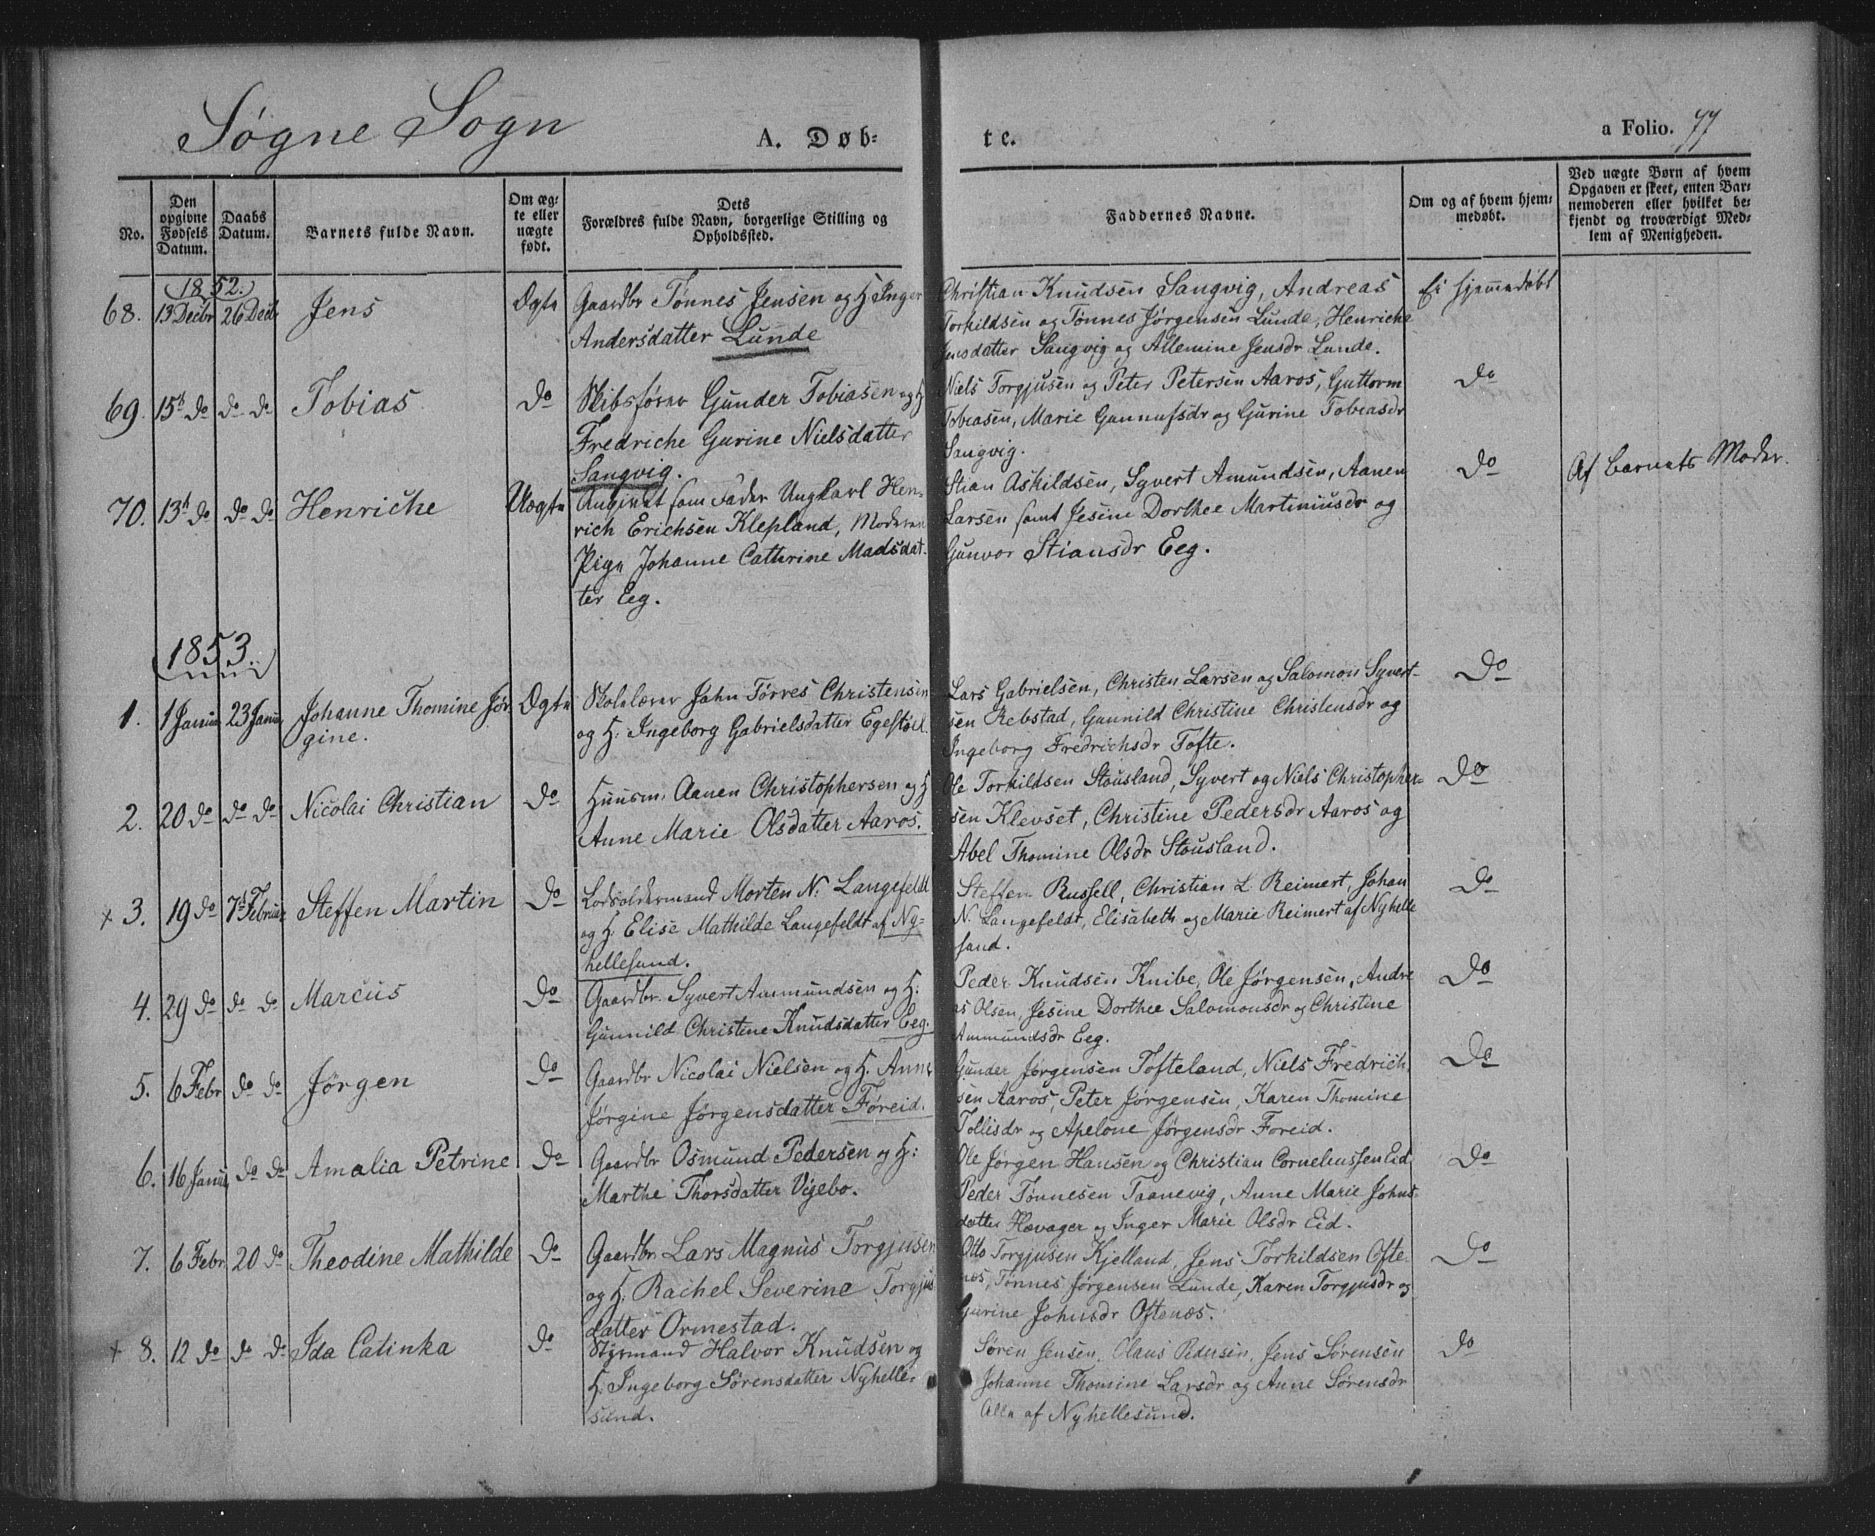 Søgne Sogn
A. Døb-
te.
a Folio. 77
No.
Den opgivne Fødsels Datum.
Daabs Datum.
Barnets fulde Navn.
Om ægte eller uægte født.
Dets
Forældres fulde Navn, borgerlige Stilling og
Opholdssted.
Faddernes Navne.
Om og af hvem hjem-
medøbt.
Ved uægte Børn af hvem
Opgaven er skeet, enten Bar-
nemoderen eller hvilket be-
kjendt og troværdigt Med-
lem af Menigheden.
1852.
68. 13 Decbr 26 Decbr Jens Ægte Gaardbr Tønnes Jensen og H. Inger
Andersdatter Lunde
Christian Knudsen Sangvig, Andreas
Torkildsen og Tønnes Jørgensen Lunde, Henriche
Jensdatter Sangvig og Allemine Jensdr Lunde.
Ei hjemmedøbt
69. 15d do do do Tobias do Skibsfører Gunder Tobiasen og H
Fredriche Gurine Nielsdatter
Sangvig.
Niels Torgjusen og Peter Petersen Aaros, Guttorm
Tobiasen, Marie Gunnufsdr og Gurine Tobiasdr
Sangvig.
do
70. 13d do do do Henriche Uægte Angivet som Fader Ungkarl Hen-
rich Erichsen Klepland, Moderen
Pige Johanne Cathrine Madsdat-
ter Eeg.
Stian Askildsen, Syvert Amundsen, Aanen
Larsen samt Jesine Dorthee Martiniusdr og
Gunvor Stiansdr Eeg.
do
Af Barnets Moder.
1853.
1. 1 Januar 23 Januar Johanne Thomine Jør-
gine.
Ægte Skolelærer Jahn Tørres Christensen
og H. Ingeborg Gabrielsdatter Egestøel.
Lars Gabrielsen, Christen Larsen og Salomon Syvert-
sen Rebstad, Gunnild Christine Christensdr og
Ingeborg Fredrichsdr Tofte.
Do
2. 20 do do do Nicolai Christian do Huusm. Aanen Christophersen og H
Anne Marie Olsdatter Aaros.
Ole Torkildsen Stousland, Syvert og Niels Christopher-
sen Klevset, Christine Pedersdr Aaros og
Abel Thomine Olsdr Stousland.
Do
x 3. 19 do 7d Februar Steffen Martin Do Lodsoldermand Morten N. Langefeldt
og H. Elise Mathilde Langefeldt af Ny-
hellesund.
Steffen Russell, Christian L Reimert, Johan
N. Langefeldt, Elisabeth og Marie Reimert af Nyhelle
sund.
Do
4. 29 do do do Marcus Do Gaardbr. Syvert Ammundsen og H.
Gunnild Christine Knudsdatter Eeg.
Peder Knudsen Knibe, Ole Jørgensen, Andre
as Olsen, Jesine Dorthee Salomonsdr og Christine
Ammundsdr Eeg.
Do
5. 6 Febr do do Jørgen Do Gaardbr Nicolai Nielsen og H. Anne
Jørgine Jørgensdatter Føreid.
Gunder Jørgensen Tofteland, Niels Fredrich
sen Aaros, Peter Jørgensen, Karen Thomine
Tollisdr og Apelone Jørgensdr Foreid.
Do
6. 16 Januar do do Amalia Petrine Do Gaardbr Osmund Pedersen og H:
Marthe Thorsdatter Vejebo.
Ole Jørgen Hansen og Christian Corneliussen Eid
Peder Tønnesen Taanevig, Anne Marie Johns-
datter Høvager og Inger Marie Olsdr Eid.
Do
7. 6 Febr 20 do Theodine Mathilde Do Gaardbr. Lars Magnus Torgjusen
og H. Rachel Severine Torgjus
datter Ormestad.
Otto Torgjusen Kjelland, Jens Torkildsen Ofte-
nes, Tønnes Jørgensen Lunde, Karen Torgjusdr og
Gurine Johnsdr Oftenæs.
Do
x 8. 12 do do do Ida Catinka do Styrmand Halvor Knudsen og
H. Ingeborg Sørensdatter Nyhelle-
sund.
Søren Jensen, Olaus Pedersen, Jens Sørensen
Johanne Thomine Larsdr og Anne Sørensdr
Alle af Nyhellesund.
do